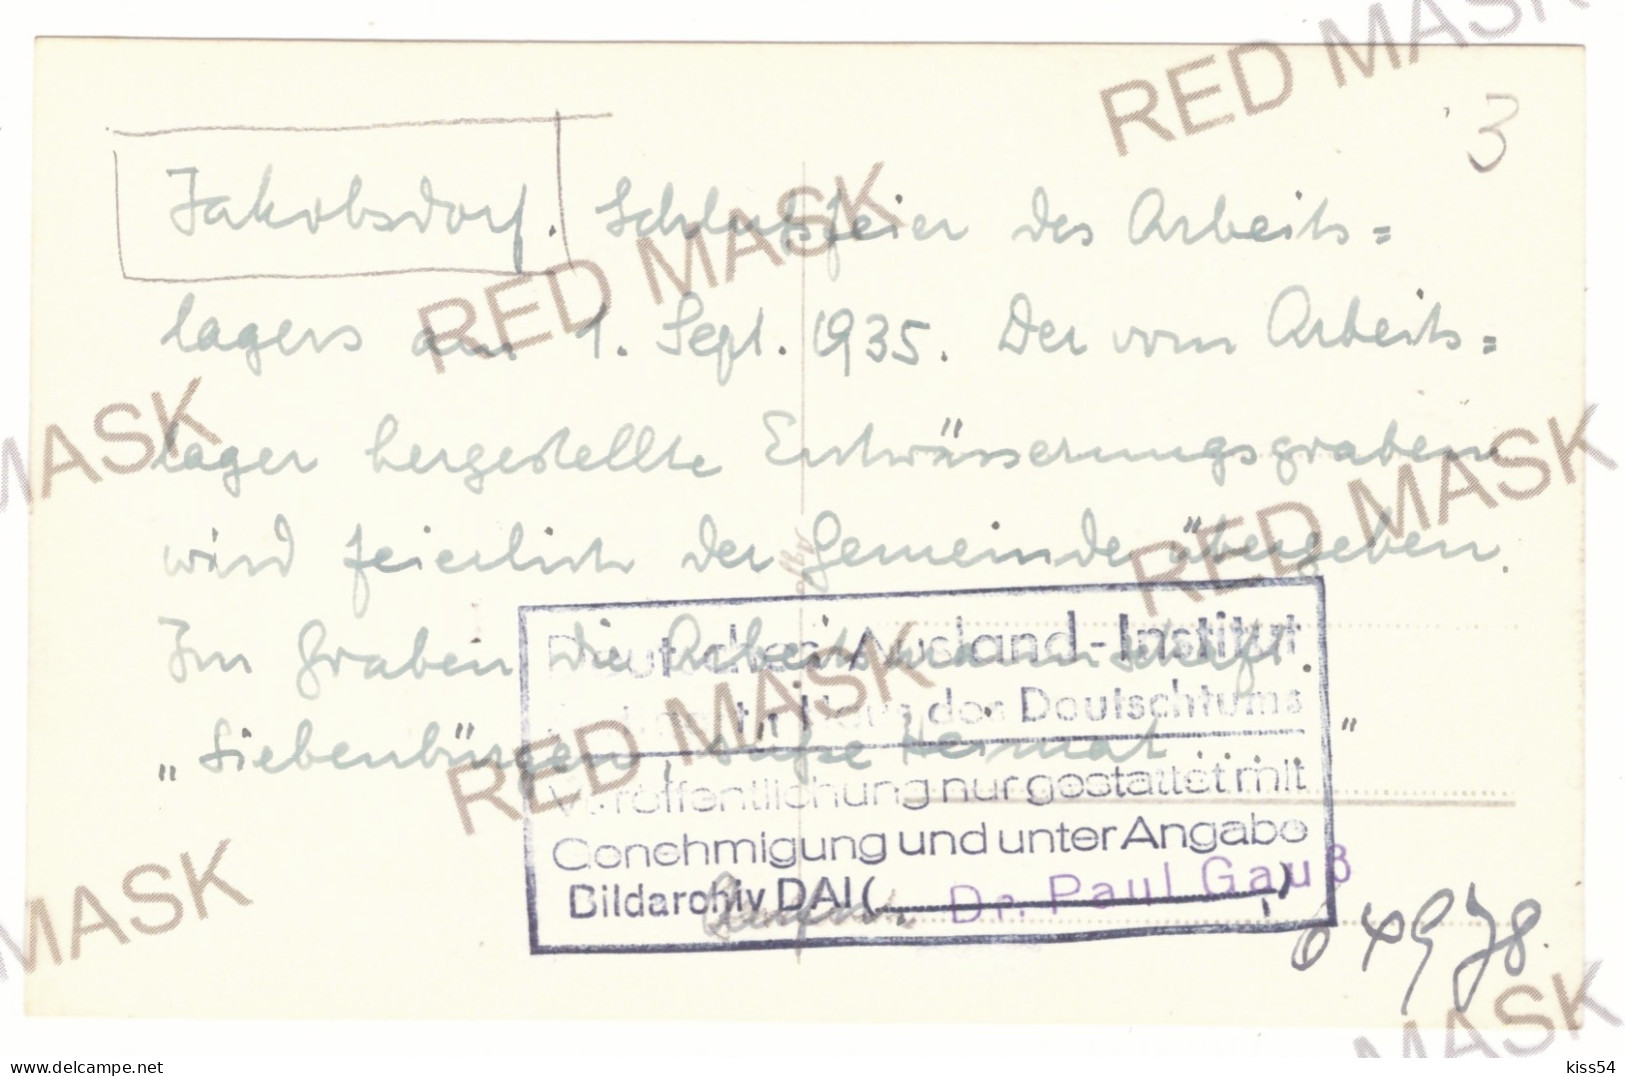 3
Jakobsdorf. Schlußfeier des Arbeits=
lagers am 1. Sept. 1935. Der vom Arbeits=
lager hergestellte Entwässerungsgraben
wird feierlich der Gemeinde übergeben.
Im Graben die Arbeitsmannschaft.
„Siebenbürgen, süße Heimat"
Deutsches Ausland-Institut
Haus des Deutschtums
Veröffentlichung nur gestattet mit
Genehmigung und unter Angabe
Bildarchiv DAI (Dr. Paul Gauß)
RED MASK
RED MASK
RED MASK
RED MASK
RED MASK
RED MASK
MASK
delcampe.net
kiss54